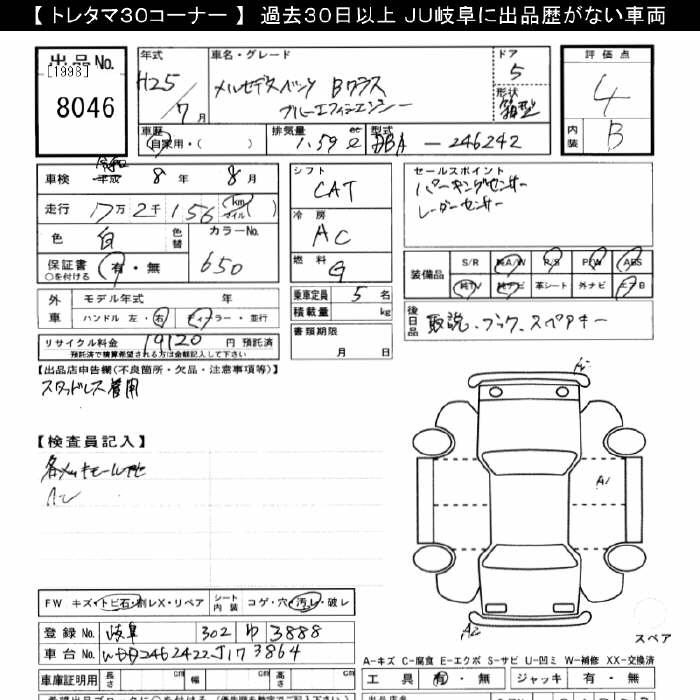 【 トレタマ30コーナー 】 過去30日以上 JU岐阜に出品歴がない車両
出品No.
[1998]
8046
年式
H25/7月
車名・グレード
メルセデスベンツ Bクラス
ブルーエフィシエンシー
ドア
5
形状
箱型
評価点
4
内装
B
車歴
自家用・( )
排気量
1.59ℓ
型式
DBA-246242
車検 平成 令和 8年 8月
走行 17万2千156 (km マイル)
色 白 色替
カラーNo.
650
保証書 有・無
○を付ける
シフト
CAT
冷房
AC
燃料
G
セールスポイント
パーキングセンサー
レーダーセンサー
装備品 S/R 純A/W P/S P/W ABS
純TV 純ナビ 革シート 外ナビ エアB
外車 モデル年式 年
ハンドル 左・右 ディーラー・並行
乗車定員 5名
積載量 kg
後日品 取説、フック、スペアキー
書類期限
月 日
リサイクル料金 19120 円 預託済
預託済で積算希望される方は金額記入して下さい
【出品店申告欄(不良箇所・欠品・注意事項等)】
スタッドレス着用
【検査員記入】
A2
A1
A2
FW キズ・トビ石・割レX・リペア シート内装 コゲ・穴・汚レ・破レ
登録No. 岐阜 302 ゆ 3888
車台No. WDD2462422J173864
スペア
A-キズ C-腐食 E-エクボ S-サビ U-凹ミ W-補修 XX-交換済
車庫証明用 長さ cm 幅 cm 高さ cm
工具 有・無 ジャッキ 有・無